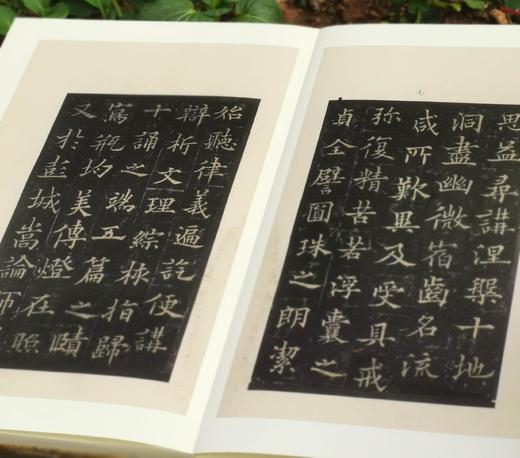 七
思益尋講涅槃十地
洞盡幽微宿齒名流
咸所歎異及受具戒
弥復精苦若浮囊之
貞全譬圓珠之朗潔
始聽律義遍訖便講
辯析文理綜核指歸
十誦之端五篇之賾
寫瓶均美傳燈在照
又於彭城嵩論師